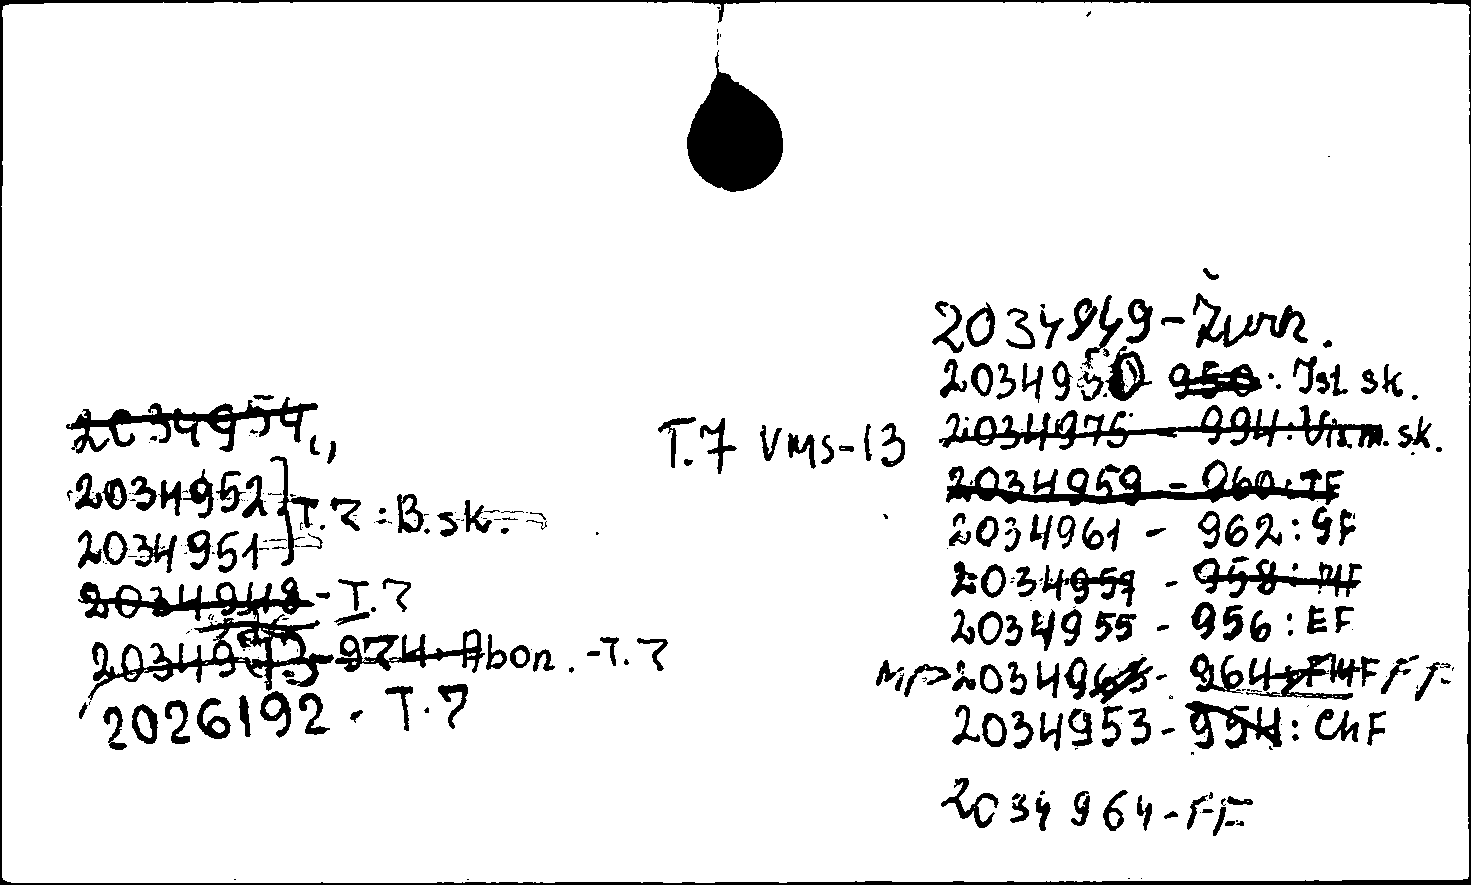 2034954,
2034952
2034951 } T.7 : B.sk.
2034948 - T.7
2034973 - 974: Abon. - T.7
2026192 - T.7
T.7 VMS-13
2034949 - Žurn.
2034950 950: Ist sk.
2034975 - 994: Vis.m.sk.
2034959 - 960: TF
2034961 - 962: GF
2034957 - 958: MF
2034955 - 956: EF
2034963 - 964: FMF FF
2034953 - 954: ChF
2034964 - FF